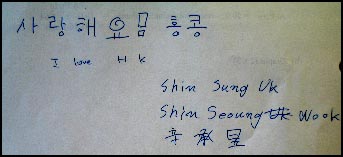 사랑해요 홍콩
I love H k
Shin Sung Uk
Shin Seoung Uk Wook
辛承昱